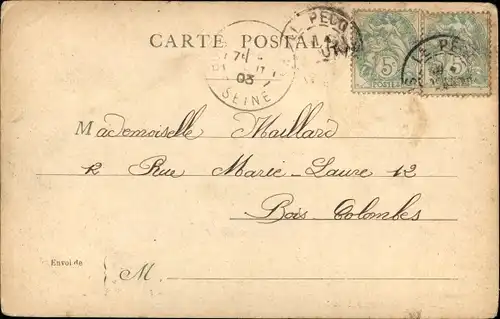 CARTE POSTALE
LE PECQ
LE PECQ
03
SEINE
5 5
POSTES
Mademoiselle Maillard
12 Rue Marie-Laure 12
Bois-Colombes
Envoi de
M.